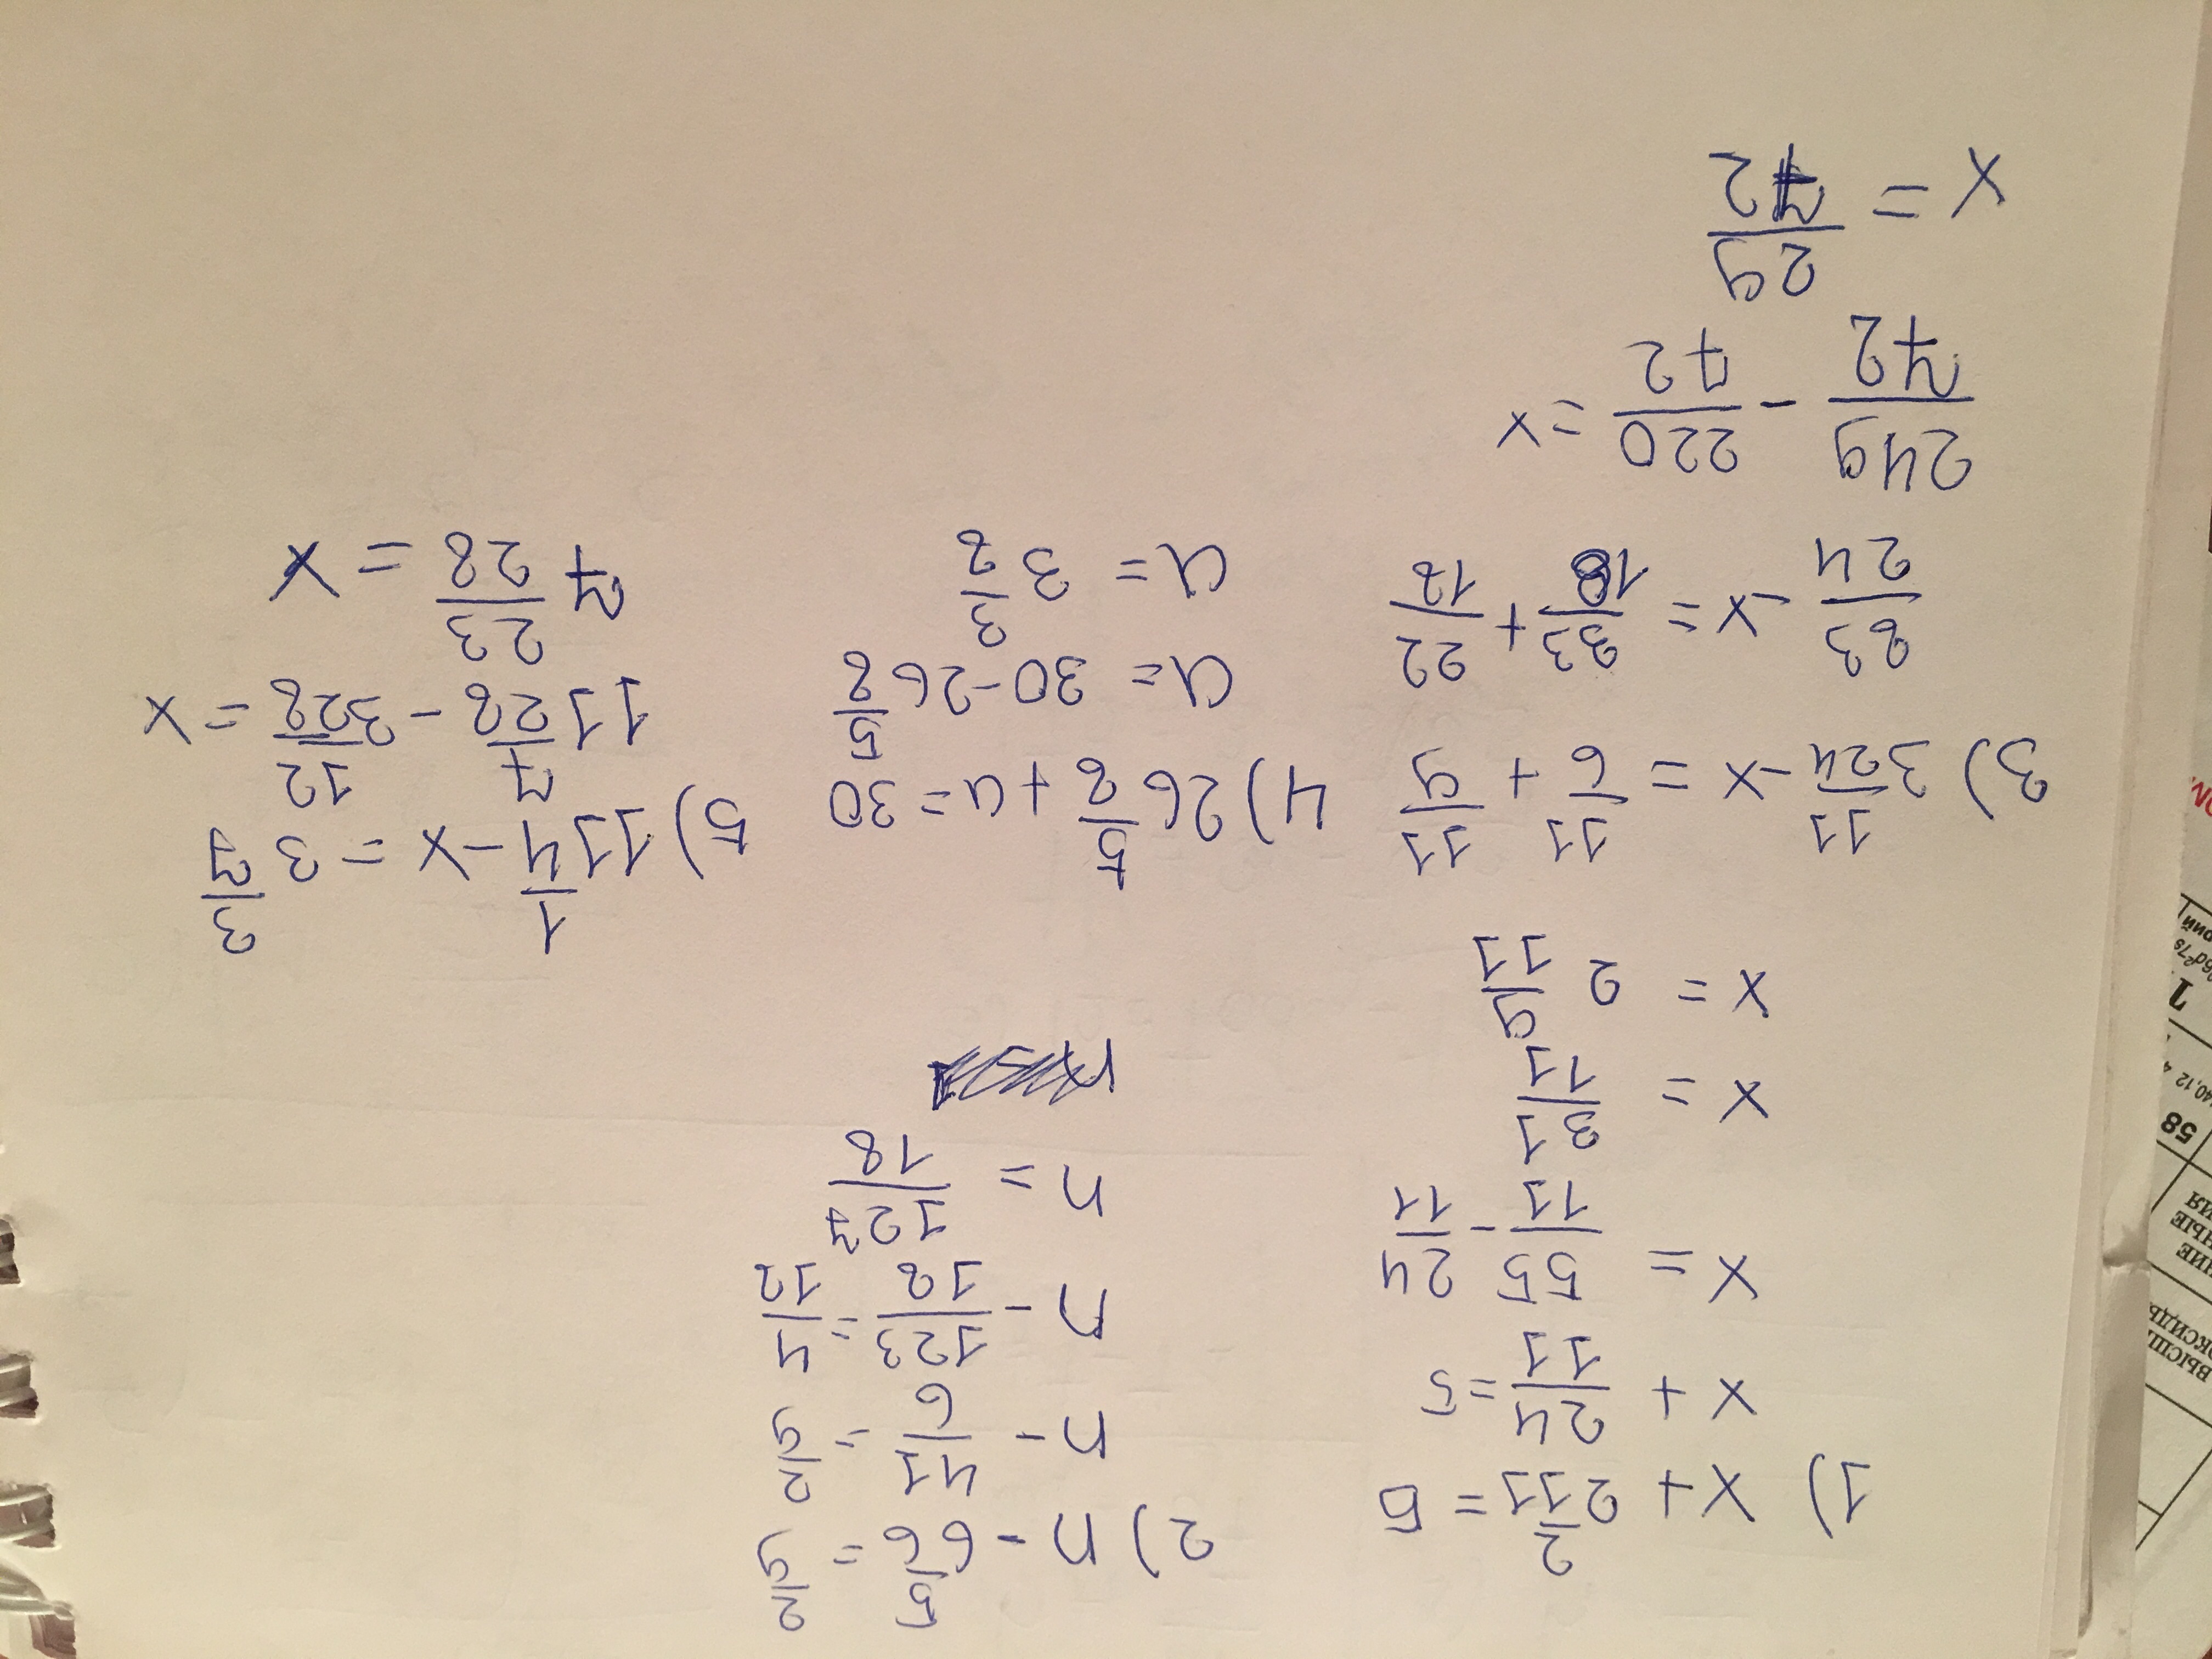 1) x + 2 2/11 = 5
x + 24/11 = 5
x = 55/11 - 24/11
x = 31/11
x = 2 9/11
2) n - 6 5/6 = 2/9
n - 41/6 = 2/9
n - 123/18 = 4/18
n = 127/18
3) 3 11/24 - x = 11/6 + 11/9
83/24 - x = 33/18 + 22/18
249/72 - 220/72 = x
x = 29/72
4) 26 5/8 + a = 30
a = 30 - 26 5/8
a = 3 3/8
5) 11 1/4 - x = 3 3/7
11 7/28 - 3 12/28 = x
7 23/28 = x
58
140,12
ВЫСШ
ОКСИДЫ